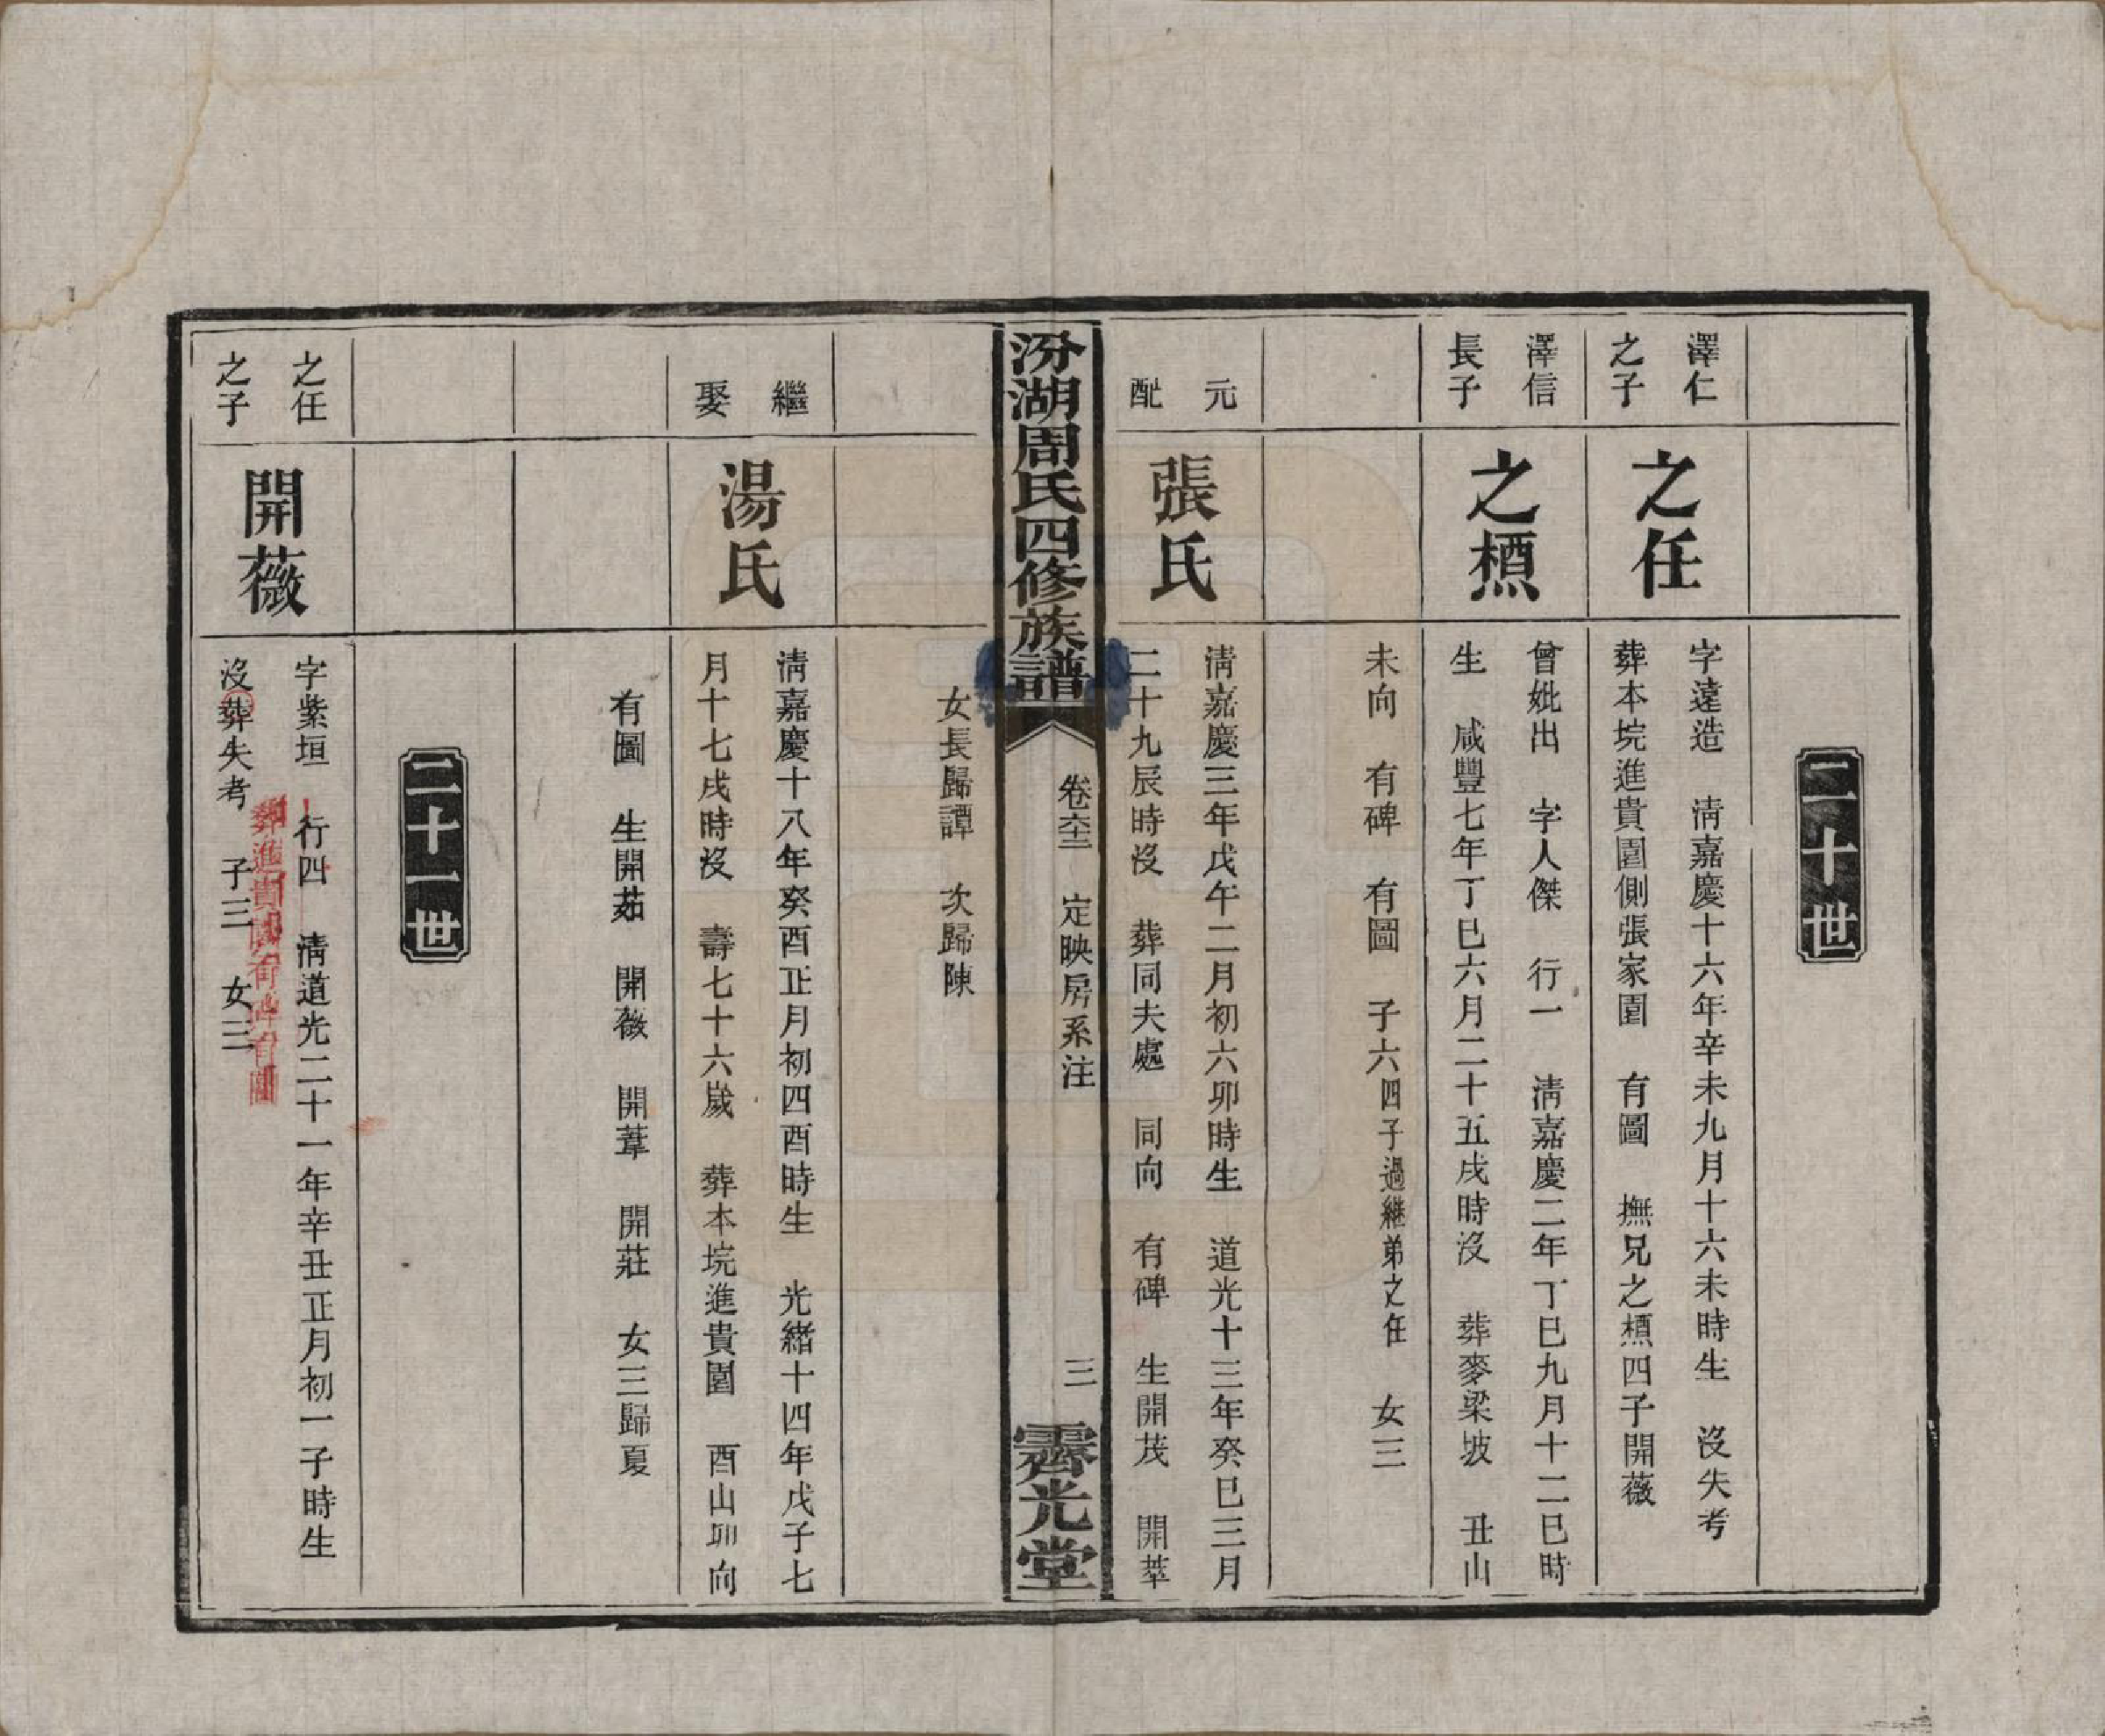 二十世
澤仁之子
之任
字遠造　清嘉慶十六年辛未九月十六未時生　沒失考
葬本垸進貴園側張家園　有圖　撫兄之槱四子開薇
澤信長子
之槱
曾妣出　字人傑　行一　清嘉慶二年丁巳九月十二巳時
生　咸豐七年丁巳六月二十五戌時沒　葬麥梁坡　丑山
未向　有碑　有圖　子六四子過継弟之任　女三
元配
張氏
清嘉慶三年戊午二月初六卯時生　道光十三年癸巳三月
二十九辰時沒　葬同夫處　同向　有碑　生開茂　開莘
汾湖周氏四修族譜
卷六二　定映房系注
三
霽光堂
女長歸譚　次歸陳
繼娶
湯氏
清嘉慶十八年癸酉正月初四酉時生　光緒十四年戊子七
月十七戌時沒　壽七十六歲　葬本垸進貴園　酉山卯向
有圖　生開茹　開薇　開葦　開莊　女三歸夏
二十一世
之任之子
開薇
字紫垣　行四　清道光二十一年辛丑正月初一子時生
葬進貴園有碑有圖
沒葬失考　子三　女三